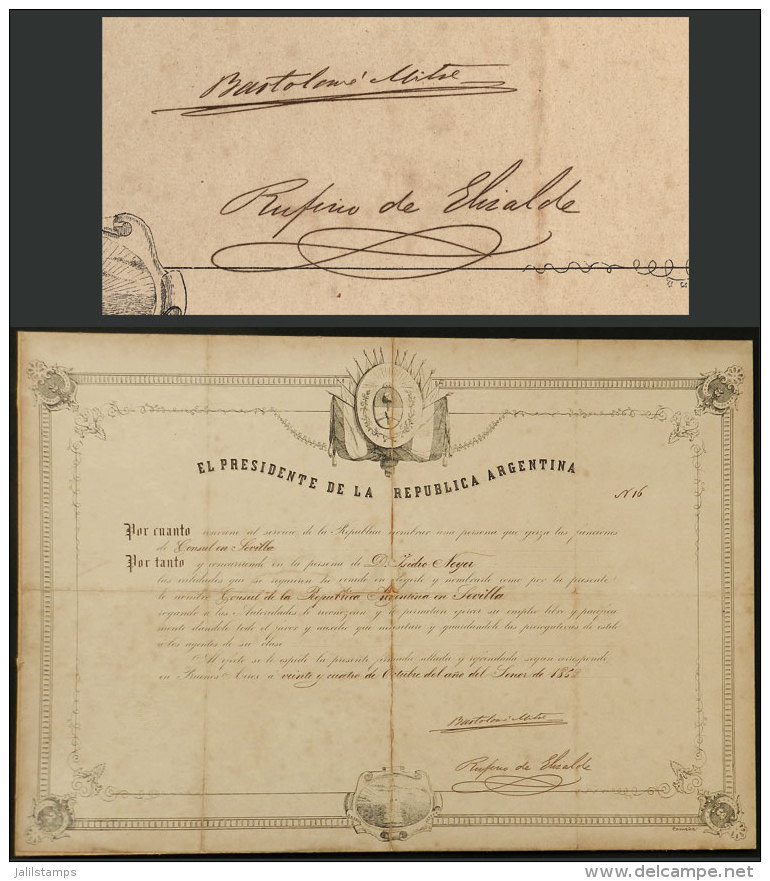 Bartolomé Mitre
Rufino de Elizalde
EL PRESIDENTE DE LA REPUBLICA ARGENTINA
Nº 16
Por cuanto conviene al servicio de la República nombrar una persona que ejerza las funciones
de Consul en Sevilla
Por tanto y concurriendo en la persona de D. Isidro
las calidades que se requieren he venido en elegirle y nombrarle como por la presente
le nombro Consul de la Republica Argentina en Sevilla
rogando a las Autoridades le reconozcan y ejercer su empleo libre y pacifica
mente dandole todo el favor y ausilio que necesitare y guardandole las prerogativas de estilo
a los agentes de su clase
Al efecto se le espide la presente firmada sellada y refrendada segun corresponde
en Buenos Aires a veinte y cuatro de Octubre del año del Señor de
Bartolomé Mitre
Rufino de Elizalde
jalilstamps
delcampe.net